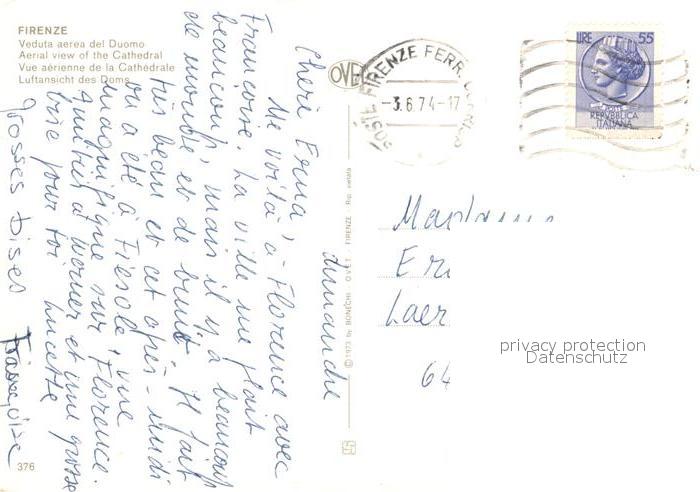 FIRENZE
Veduta aerea del Duomo
Aerial view of the Cathedral
Vue aérienne de la Cathédrale
Luftansicht des Doms
dimanche
Chère Erna,
Me voilà à Florence avec
Françoise. La ville me plait
beaucoup, mais il y a beaucoup
de monde et de bruit. Il fait
très beau et cet après-midi
on a été à Fiesole, vue
magnifique sur Florence.
Amitiés à Werner et une grosse
bise pour toi Lucette
Grosses bises
Françoise
376
© 1973 by BONECHI OVET FIRENZE Rip. vietata
OVET
FIRENZE FERR.
-3.6.74-17
LIRE 55
REPVBBLICA
ITALIANA
Madame
Er
Laer
64
privacy protection
Datenschutz